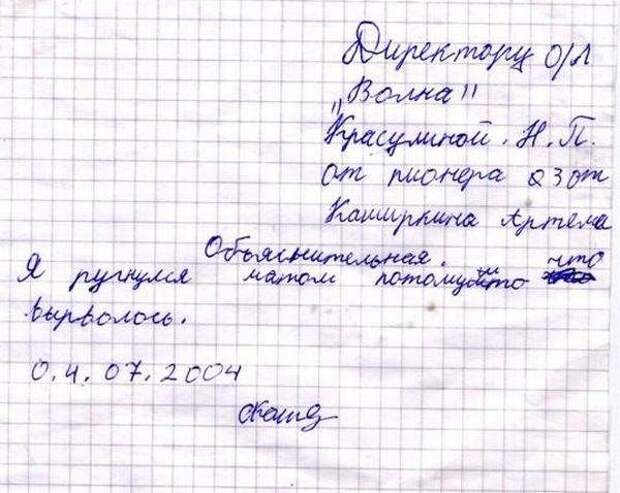 Директору О/Л
„Волна"
Красулиной. Н. П.
от пионера 23 от
Каширкина Артема
Объяснительная.
Я ругнулся матом потому что
вырволось.
0.4.07.2004